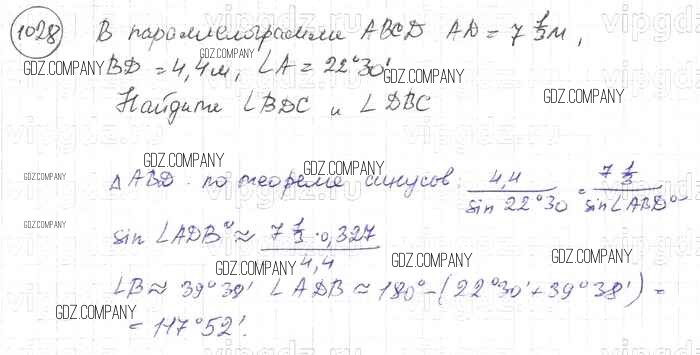 1028 В параллелограмме ABCD AD = 7 1/3 м,
GDZ.COMPANY
BD = 4,4 м, ∠A = 22°30'
GDZ.COMPANY GDZ.COMPANY GDZ.COMPANY
Найдите ∠BDC и ∠DBC
GDZ.COMPANY
GDZ.COMPANY GDZ.COMPANY
GDZ.COMPANY
△ABD по теореме синусов: 4,4 / sin 22°30 = 7 1/3 / sin∠ABD
GDZ.COMPANY GDZ.COMPANY
sin ∠ADB ≈ 7 1/3 · 0,327 / 4,4
GDZ.COMPANY GDZ.COMPANY
∠B ≈ 39°38' ∠ADB ≈ 180° - (22°30' + 39°38') =
GDZ.COMPANY GDZ.COMPANY GDZ.COMPANY
= 117°52'.